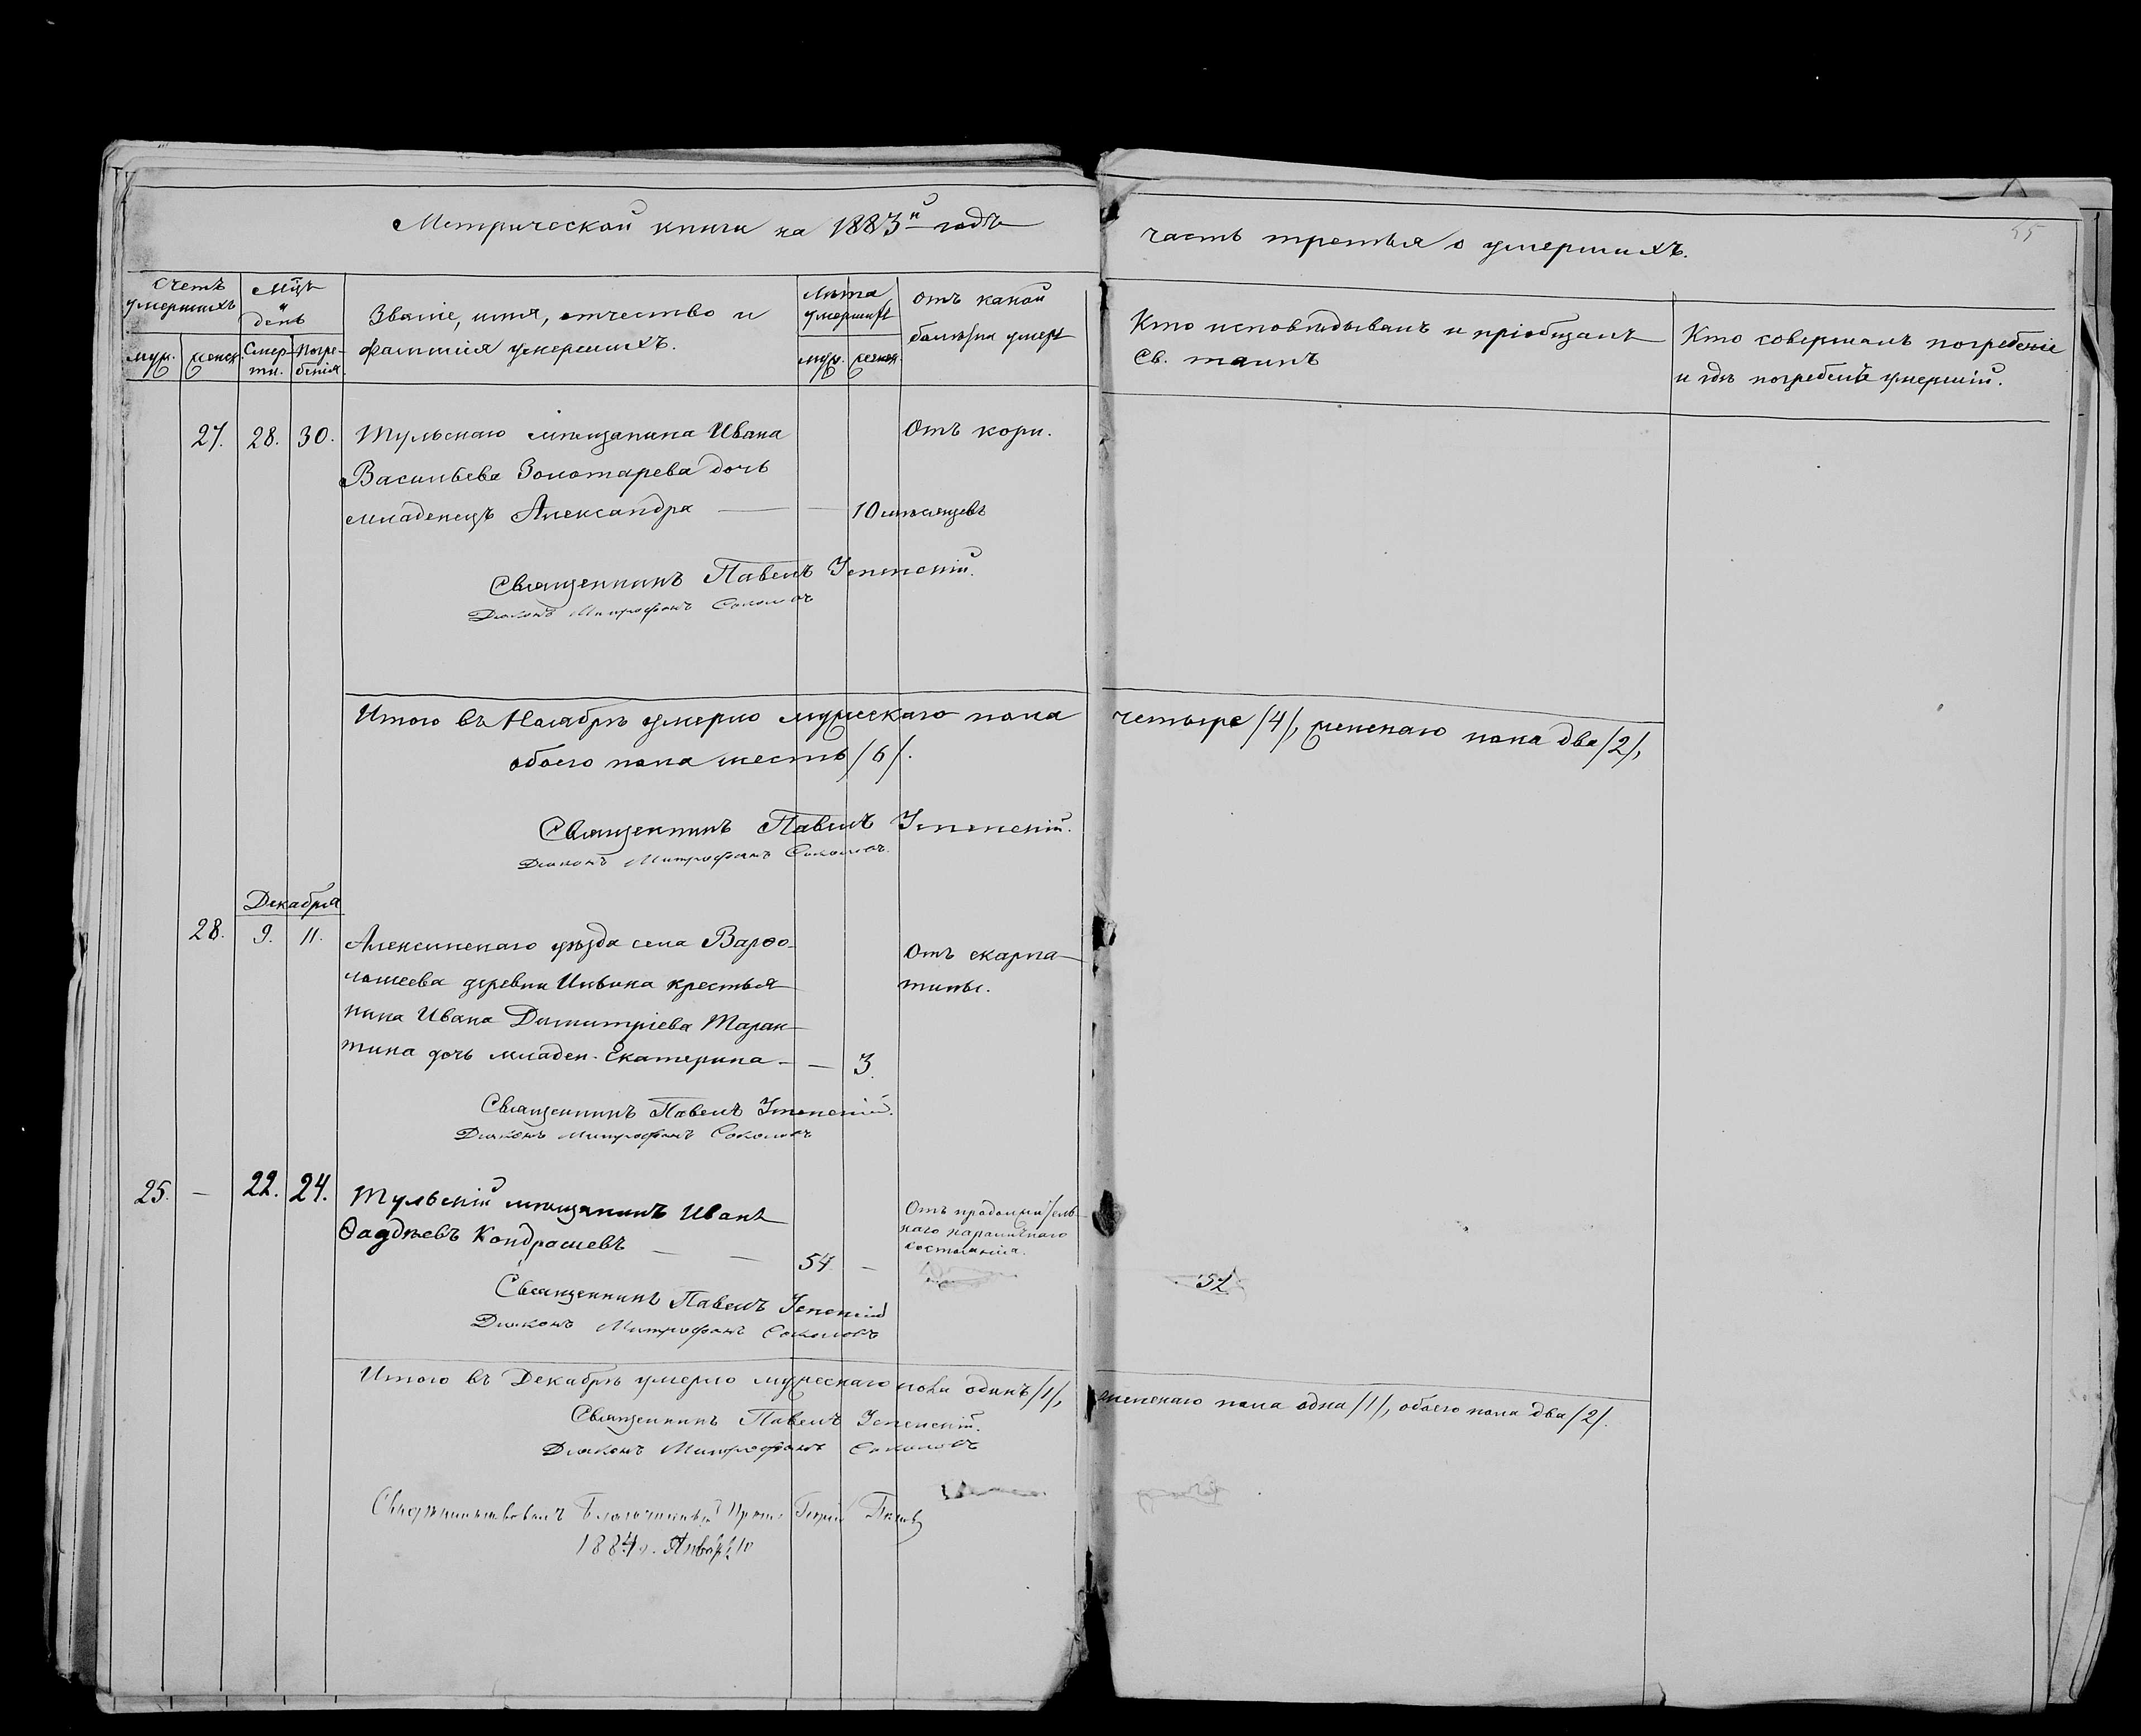 Метрической книги на 1883й годъ
часть третья о умершихъ.
55
Счетъ умершихъ
муж.
женск.
Мцъ и день
Смерти.
Погребенія.
Званіе, имя, отчество и
фамилія умершихъ.
Лѣта умершихъ
муж.
женск.
Отъ какой
болѣзни умеръ
Кто исповѣдывалъ и пріобщалъ
Св. таинъ
Кто совершалъ погребеніе
и гдѣ погребенъ умершій.
27. 28. 30. Тульскаго мѣщанина Ивана Отъ кори.
Васильева Золотарева дочь
младенецъ Александра — — 10 мѣсяцевъ
Священникъ Павелъ Успенскій.
Діаконъ Митрофанъ Соколовъ
Итого въ Ноябрѣ умерло мужескаго пола четыре /4/, женскаго пола два /2/,
обоего пола шесть /6/.
Священникъ Павелъ Успенскій.
Діаконъ Митрофанъ Соколовъ.
Декабря
28. 9. 11. Алексинскаго уѣзда села Варѳо- Отъ скарла-
ломеева деревни Ивьина крестья- тины.
нина Ивана Димитріева Таран-
тина дочь младен. Екатерина — — 3.
Священникъ Павелъ Успенскій.
Діаконъ Митрофанъ Соколовъ
25. — 22. 24. Тульскій мѣщанинъ Иванъ Отъ продолжитель-
Ѳаддѣевъ Кондрашевъ — — 54 — наго параличнаго
состоянія.
Священникъ Павелъ Успенскій
Діаконъ Митрофанъ Соколовъ
Итого въ Декабрѣ умерло мужескаго пола одинъ /1/, женскаго пола одна /1/, обоего пола два /2/.
Священникъ Павелъ Успенскій.
Діаконъ Митрофанъ Соколовъ
Свидѣтельствовалъ Благочинный Прот.
1884 г. Января 10